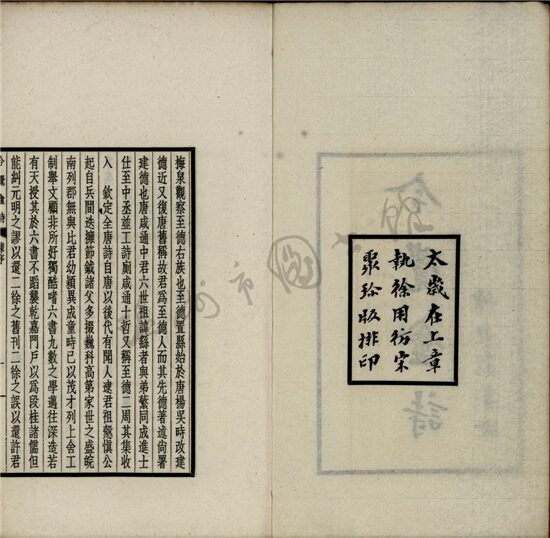 太歲在上章
執徐用仿宋
聚珍版排印
梅泉觀察至德右族也至德置縣始於唐楊吳時改建
德近又復唐舊稱故君爲至德人而其先德著述尙署
建德也唐咸通中君六世祖諱繇者與弟繁同成進士
仕至中丞並工詩廁咸通十哲又稱至德二周其集收
入 欽定全唐詩自唐以後代有聞人逮君祖慤愼公
起自兵間迭擁節鉞諸父多掇巍科高第家世之盛皖
南列郡無與比君幼穎異成童時已以茂才列上舍工
制舉文顧非所好獨酷嗜六書九數之學邁往深造若
有天授其於六書不蹈襲乾嘉門戶以爲段桂諸儒但
能糾元明之謬以還二徐之舊刊二徐之誤以還許君